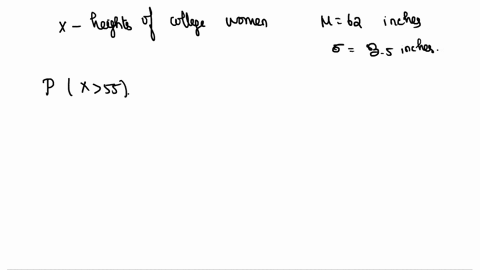 x - heights of college women M = 62 inches
σ = 3.5 inches.
P ( x > 55).